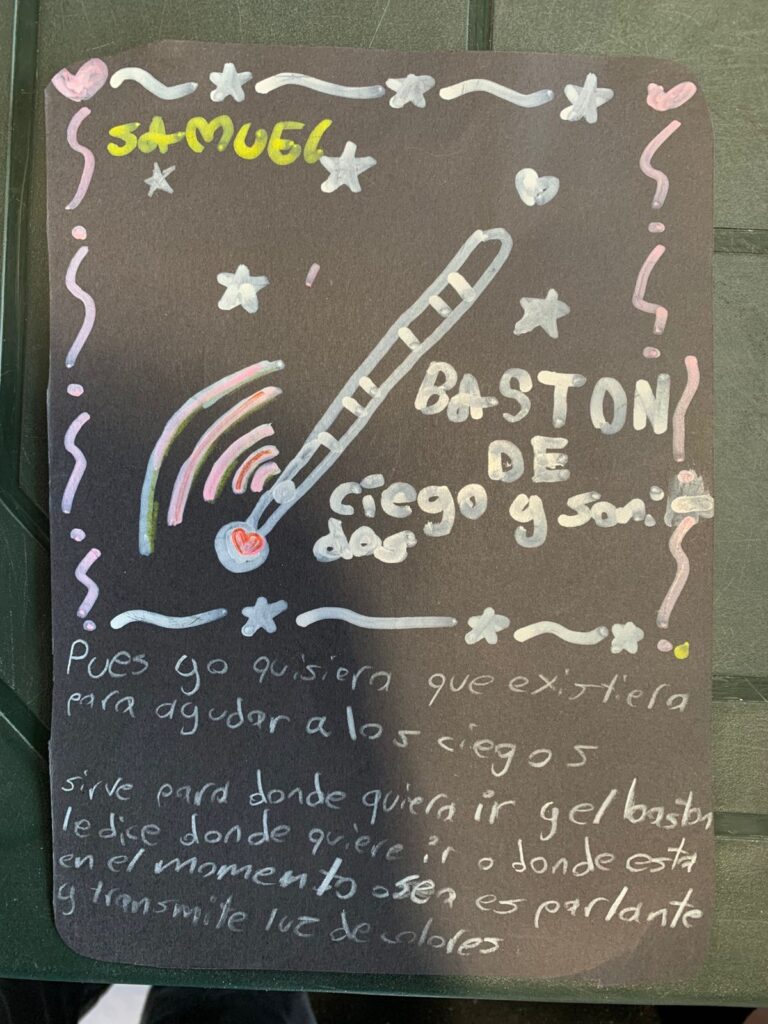 SAMUEL
BASTON
DE
ciego y soni
dos
Pues yo quisiera que existiera
para ayudar a los ciegos
sirve para donde quiera ir y el baston
le dice donde quiere ir o donde esta
en el momento osea es parlante
y transmite luz de colores